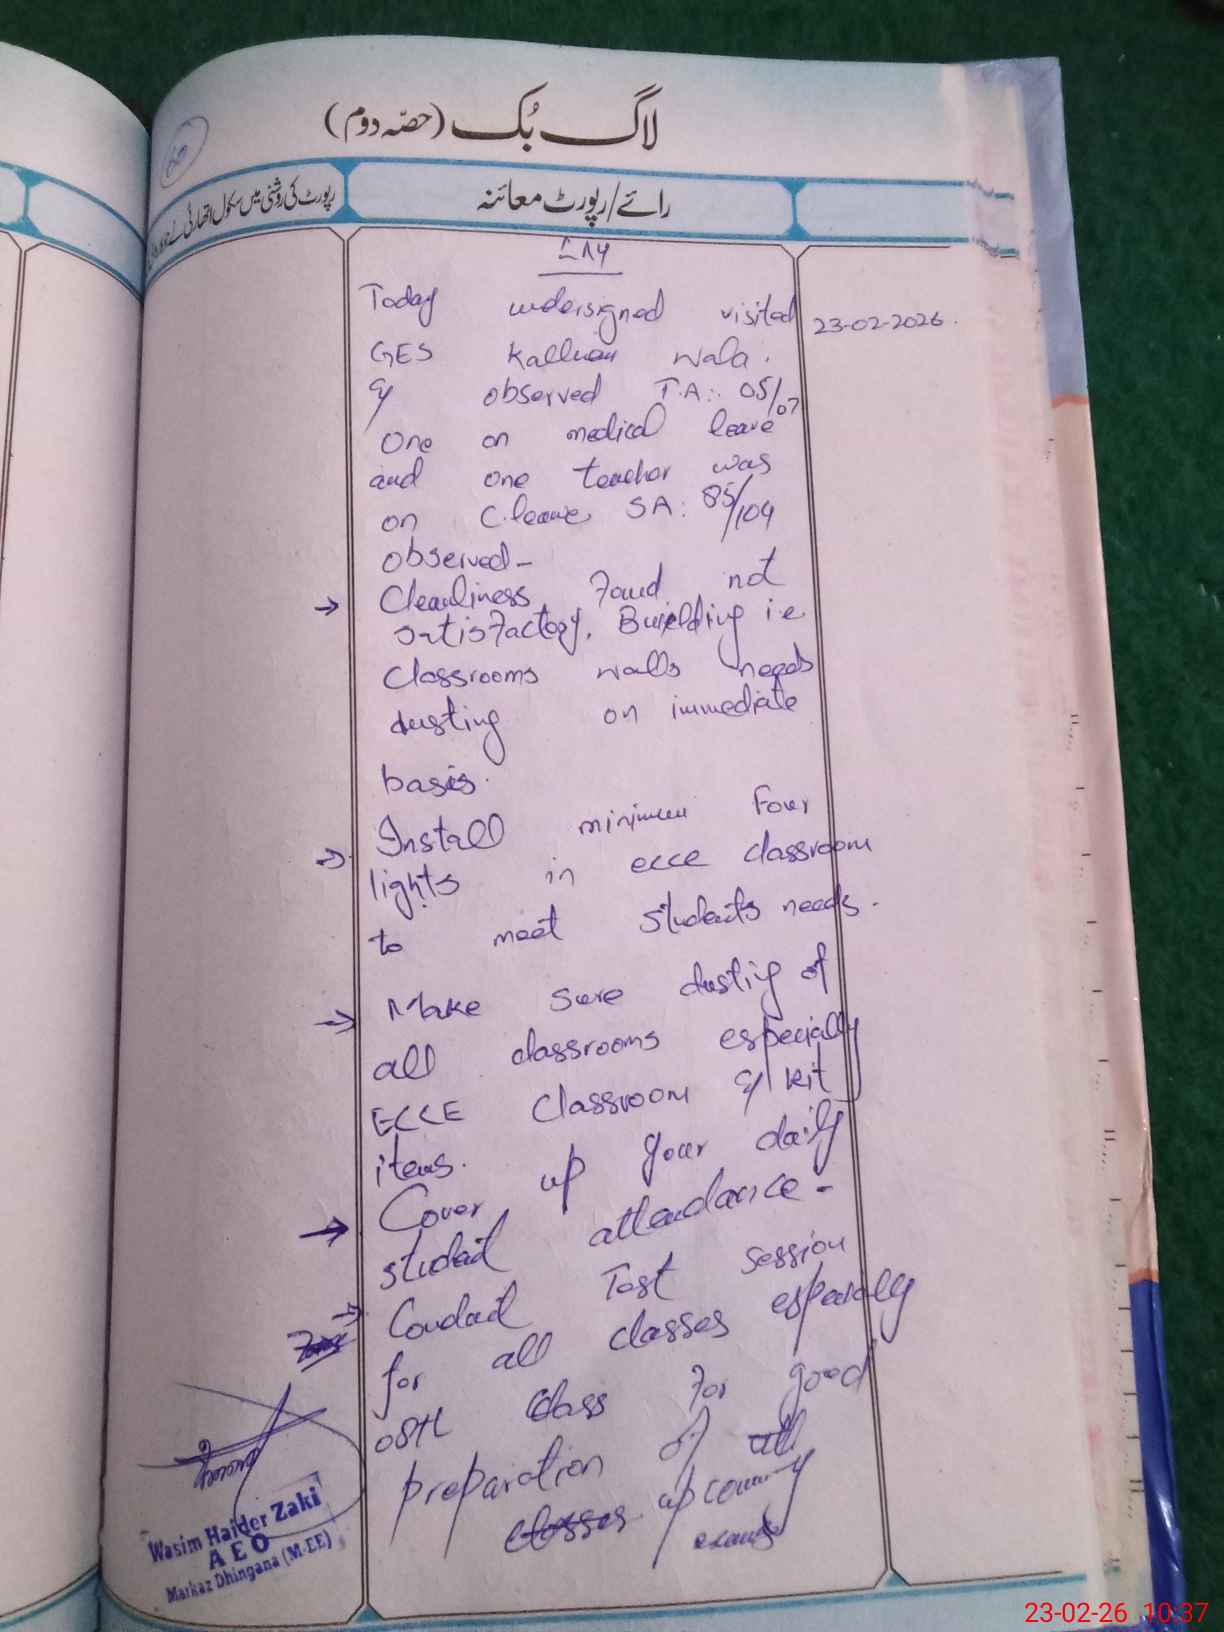 لاگ بُک (حصّہ دوم)
رپورٹ کی روشنی میں سکول اتھارٹی نے جو
رائے/رپورٹ معائنہ
Today undersigned visited
23-02-2026.
GES Kalluan wala.
& observed T.A: 05/07
One on medical leave
and one teacher was
on C.leave, SA: 85/104
observed-
→ Cleanliness found not
satisfactory. Building i.e
classrooms walls needs
dusting on immediate
basis.
→ Install minimum Four
lights in ecce classroom
to meet students needs.
→ Make sure dusting of
all classrooms especially
ECCE Classroom & kit
items.
→ Cover up your daily
student attendance-
→ Conduct Test session
for all classes especially
08th class for good
preparation of all
classes upcoming
exams
Wasim Haider Zaki
A E O
Markaz Dhingana (M-EE)
23-02-26 10:37